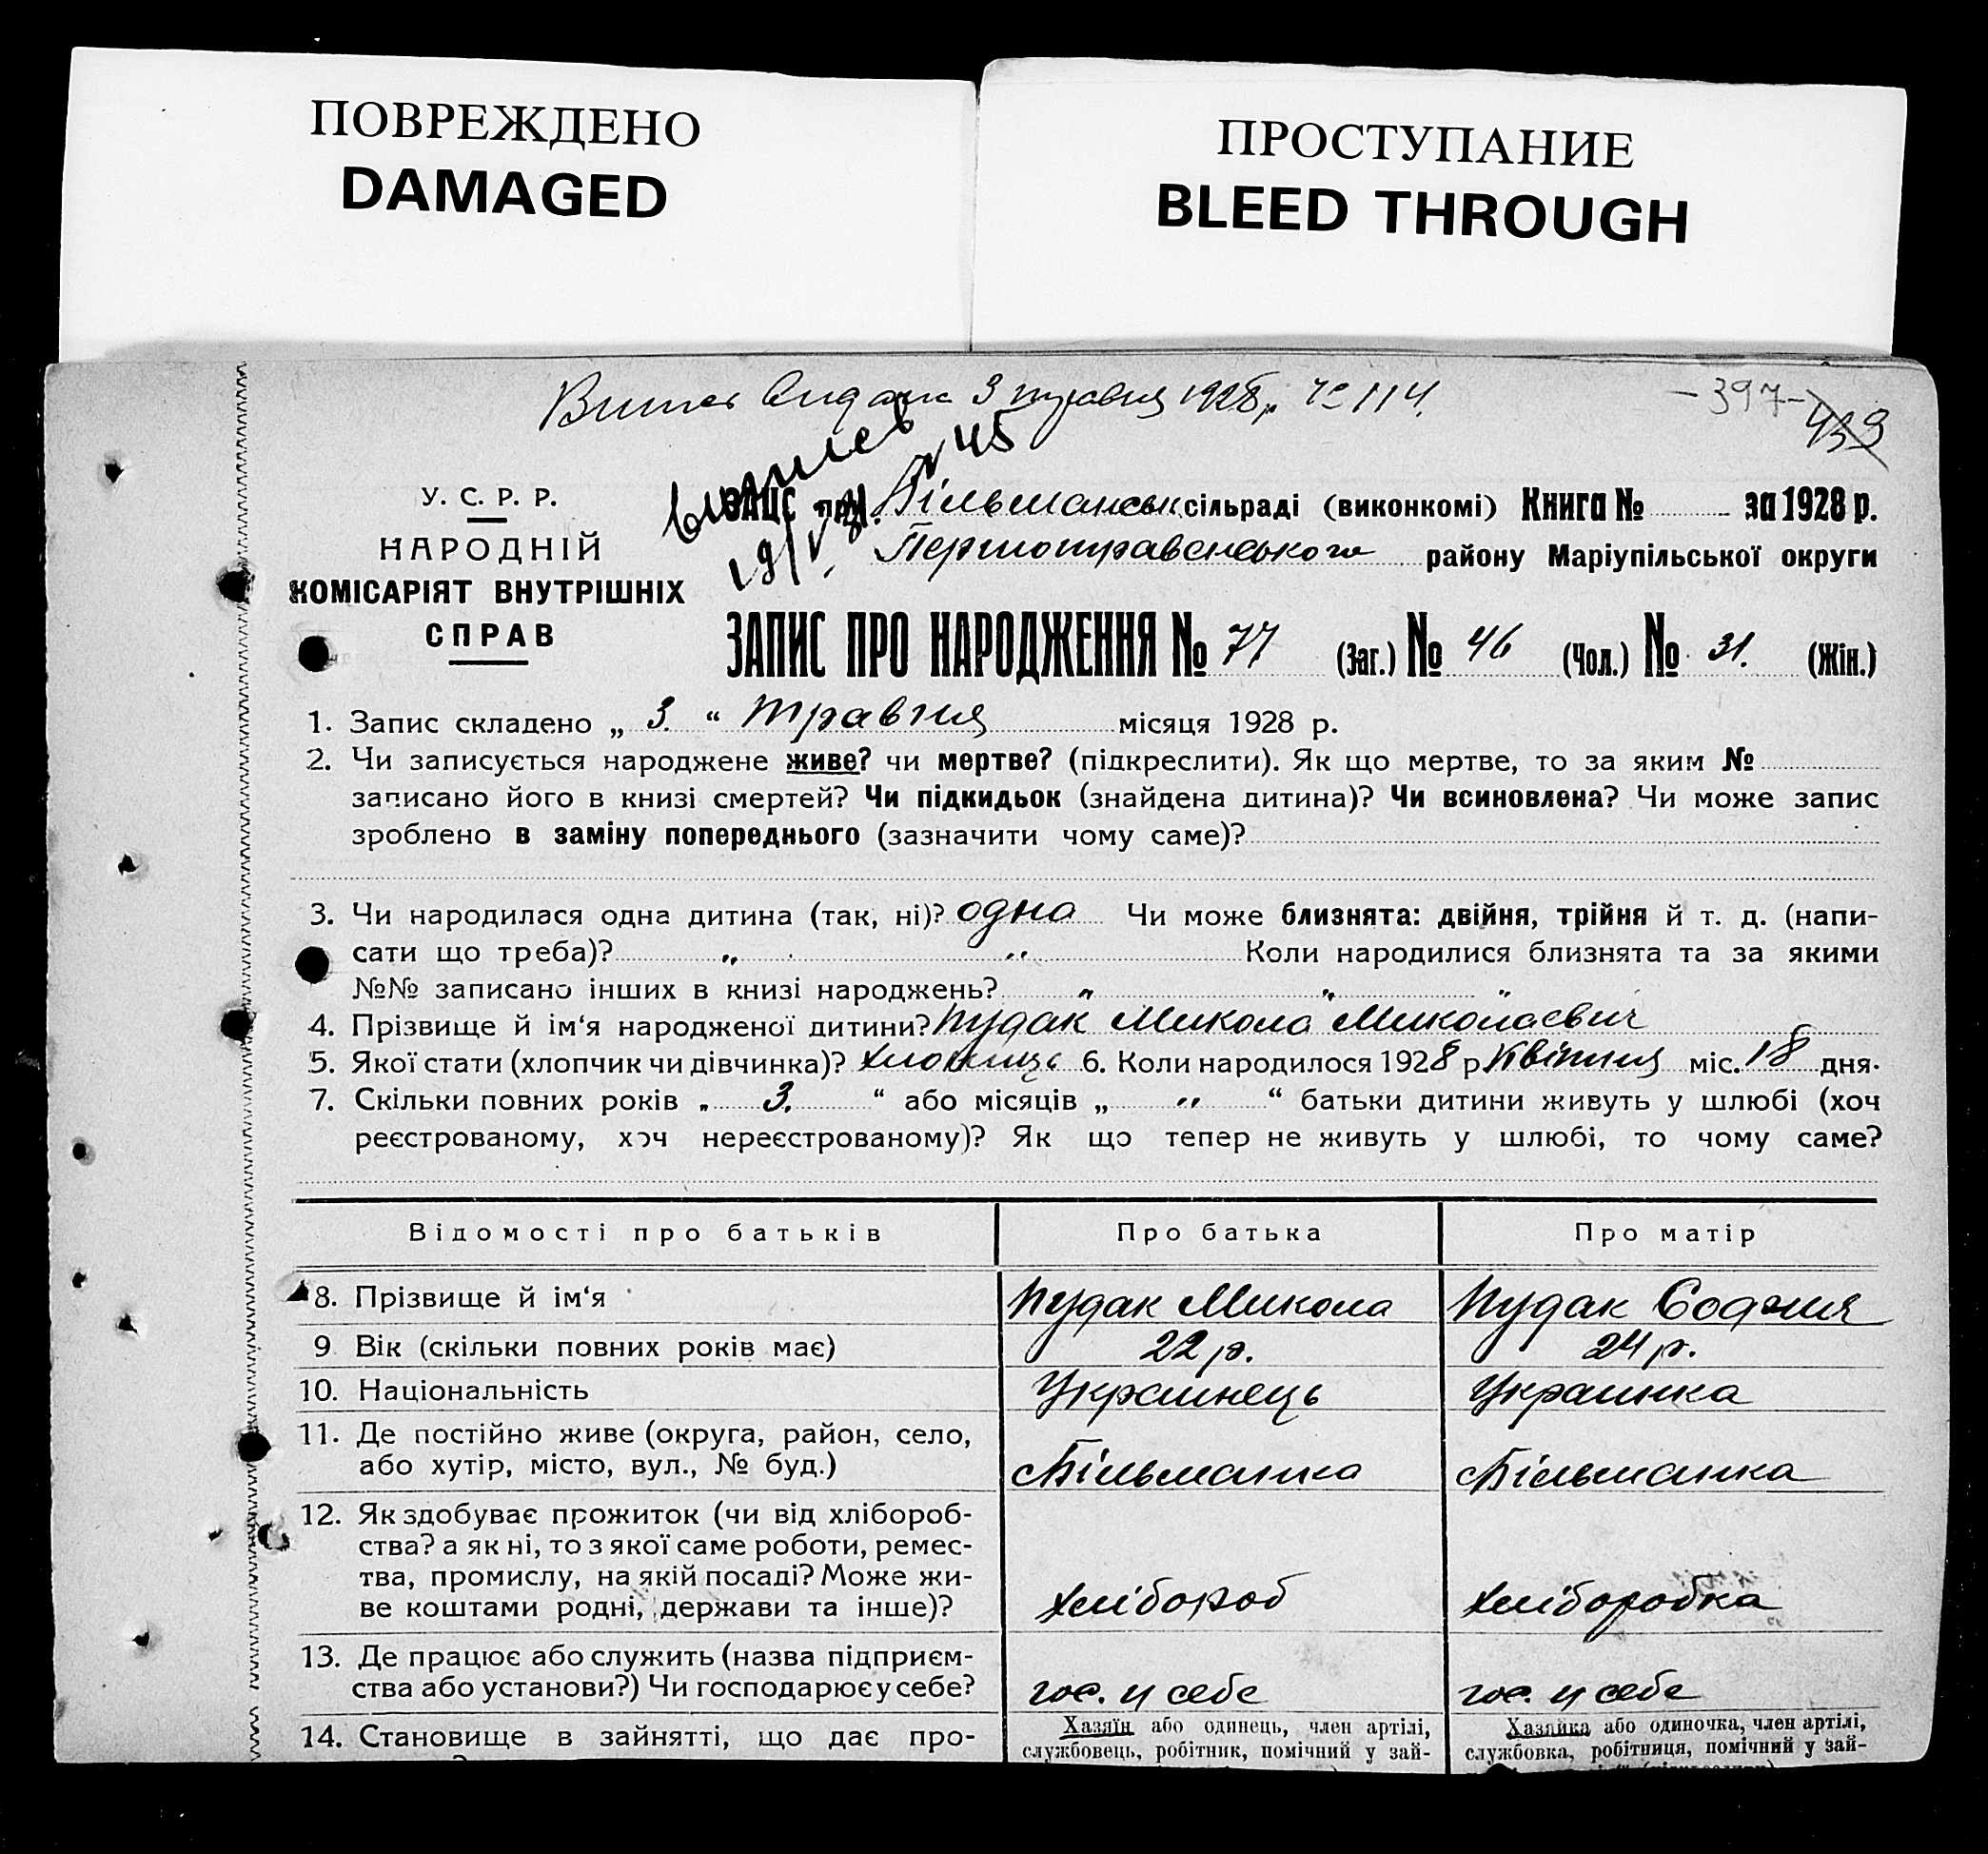 ПОВРЕЖДЕНО
DAMAGED
ПРОСТУПАНИЕ
BLEED THROUGH
3 травня 1928 р. № 114.
- 397 -
433
№ 45
У. С. Р. Р.
НАРОДНІЙ
КОМІСАРІЯТ ВНУТРІШНІХ
СПРАВ
ЗАЦС при Більманськ. сільраді (виконкомі) Книга № за 1928 р.
Першотравенського району Маріупільської округи
ЗАПИС ПРО НАРОДЖЕННЯ № 77 (Заг.) № 46 (Чол.) № 31. (Жін.)
1. Запис складено „ 3. “ травня місяця 1928 р.
2. Чи записується народжене живе? чи мертве? (підкреслити). Як що мертве, то за яким №
записано його в книзі смертей? Чи підкидьок (знайдена дитина)? Чи всиновлена? Чи може запис
зроблено в заміну попереднього (зазначити чому саме)?
3. Чи народилася одна дитина (так, ні)? одна Чи може близнята: двійня, трійня й т. д. (напи-
сати що треба)? „ „ Коли народилися близнята та за якими
№№ записано інших в книзі народжень? „ „ „
4. Прізвище й ім‘я народженої дитини? Пудак Микола Миколаєвич
5. Якої стати (хлопчик чи дівчинка)? хлопець 6. Коли народилося 1928 р. Квітня міс. 18 дня.
7. Скільки повних років „ 3. “ або місяців „ „ “ батьки дитини живуть у шлюбі (хоч
реєстрованому, хоч нереєстрованому)? Як що тепер не живуть у шлюбі, то чому саме?
Відомості про батьків Про батька Про матір
8. Прізвище й ім‘я Пудак Микола Пудак Софія
9 Вік (скільки повних років має) 22 р. 24 р.
10. Національність Украинець Украинка
11. Де постійно живе (округа, район, село,
або хутір, місто, вул., № буд.) Більманка Більманка
12. Як здобуває прожиток (чи від хлібороб-
ства? а як ні, то з якої саме роботи, ремес-
тва, промислу, на якій посаді? Може жи-
ве коштами родні, держави та інше)? хлібороб хліборобка
13. Де працює або служить (назва підприєм-
ства або установи?) Чи господарює у себе? гос. у себе гос. у себе
14. Становище в зайнятті, що дає про- Хазяїн або одинець, член артілі, Хазяйка або одиночка, член артілі,
службовець, робітник, помічний у зай- службовка, робітниця, помічний у зай-